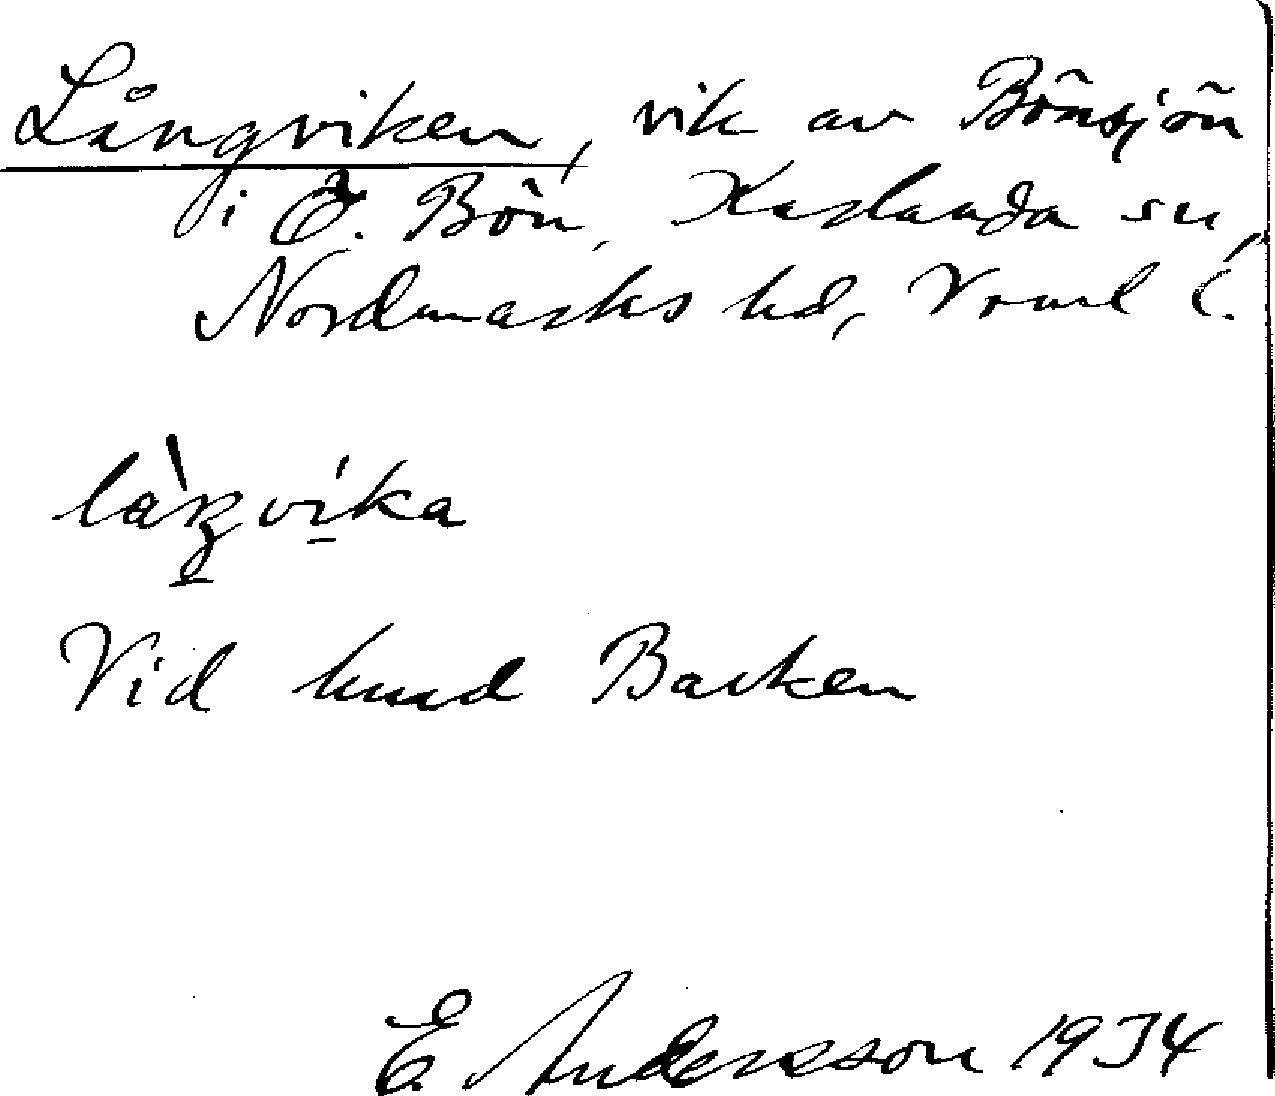 Långviken, vik av Bönsjön
i Ö. Bön, Karlanda sn,
Nordmarks hd, Vrml l.
låŋvika
Vid hmd Backen
E. Andersson 1934